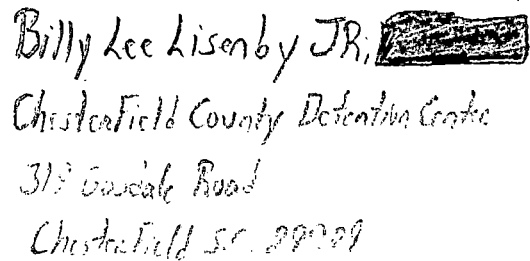 Billy Lee Lisenby JR,
Chesterfield County Detention Center
Road
Chesterfield S.C.